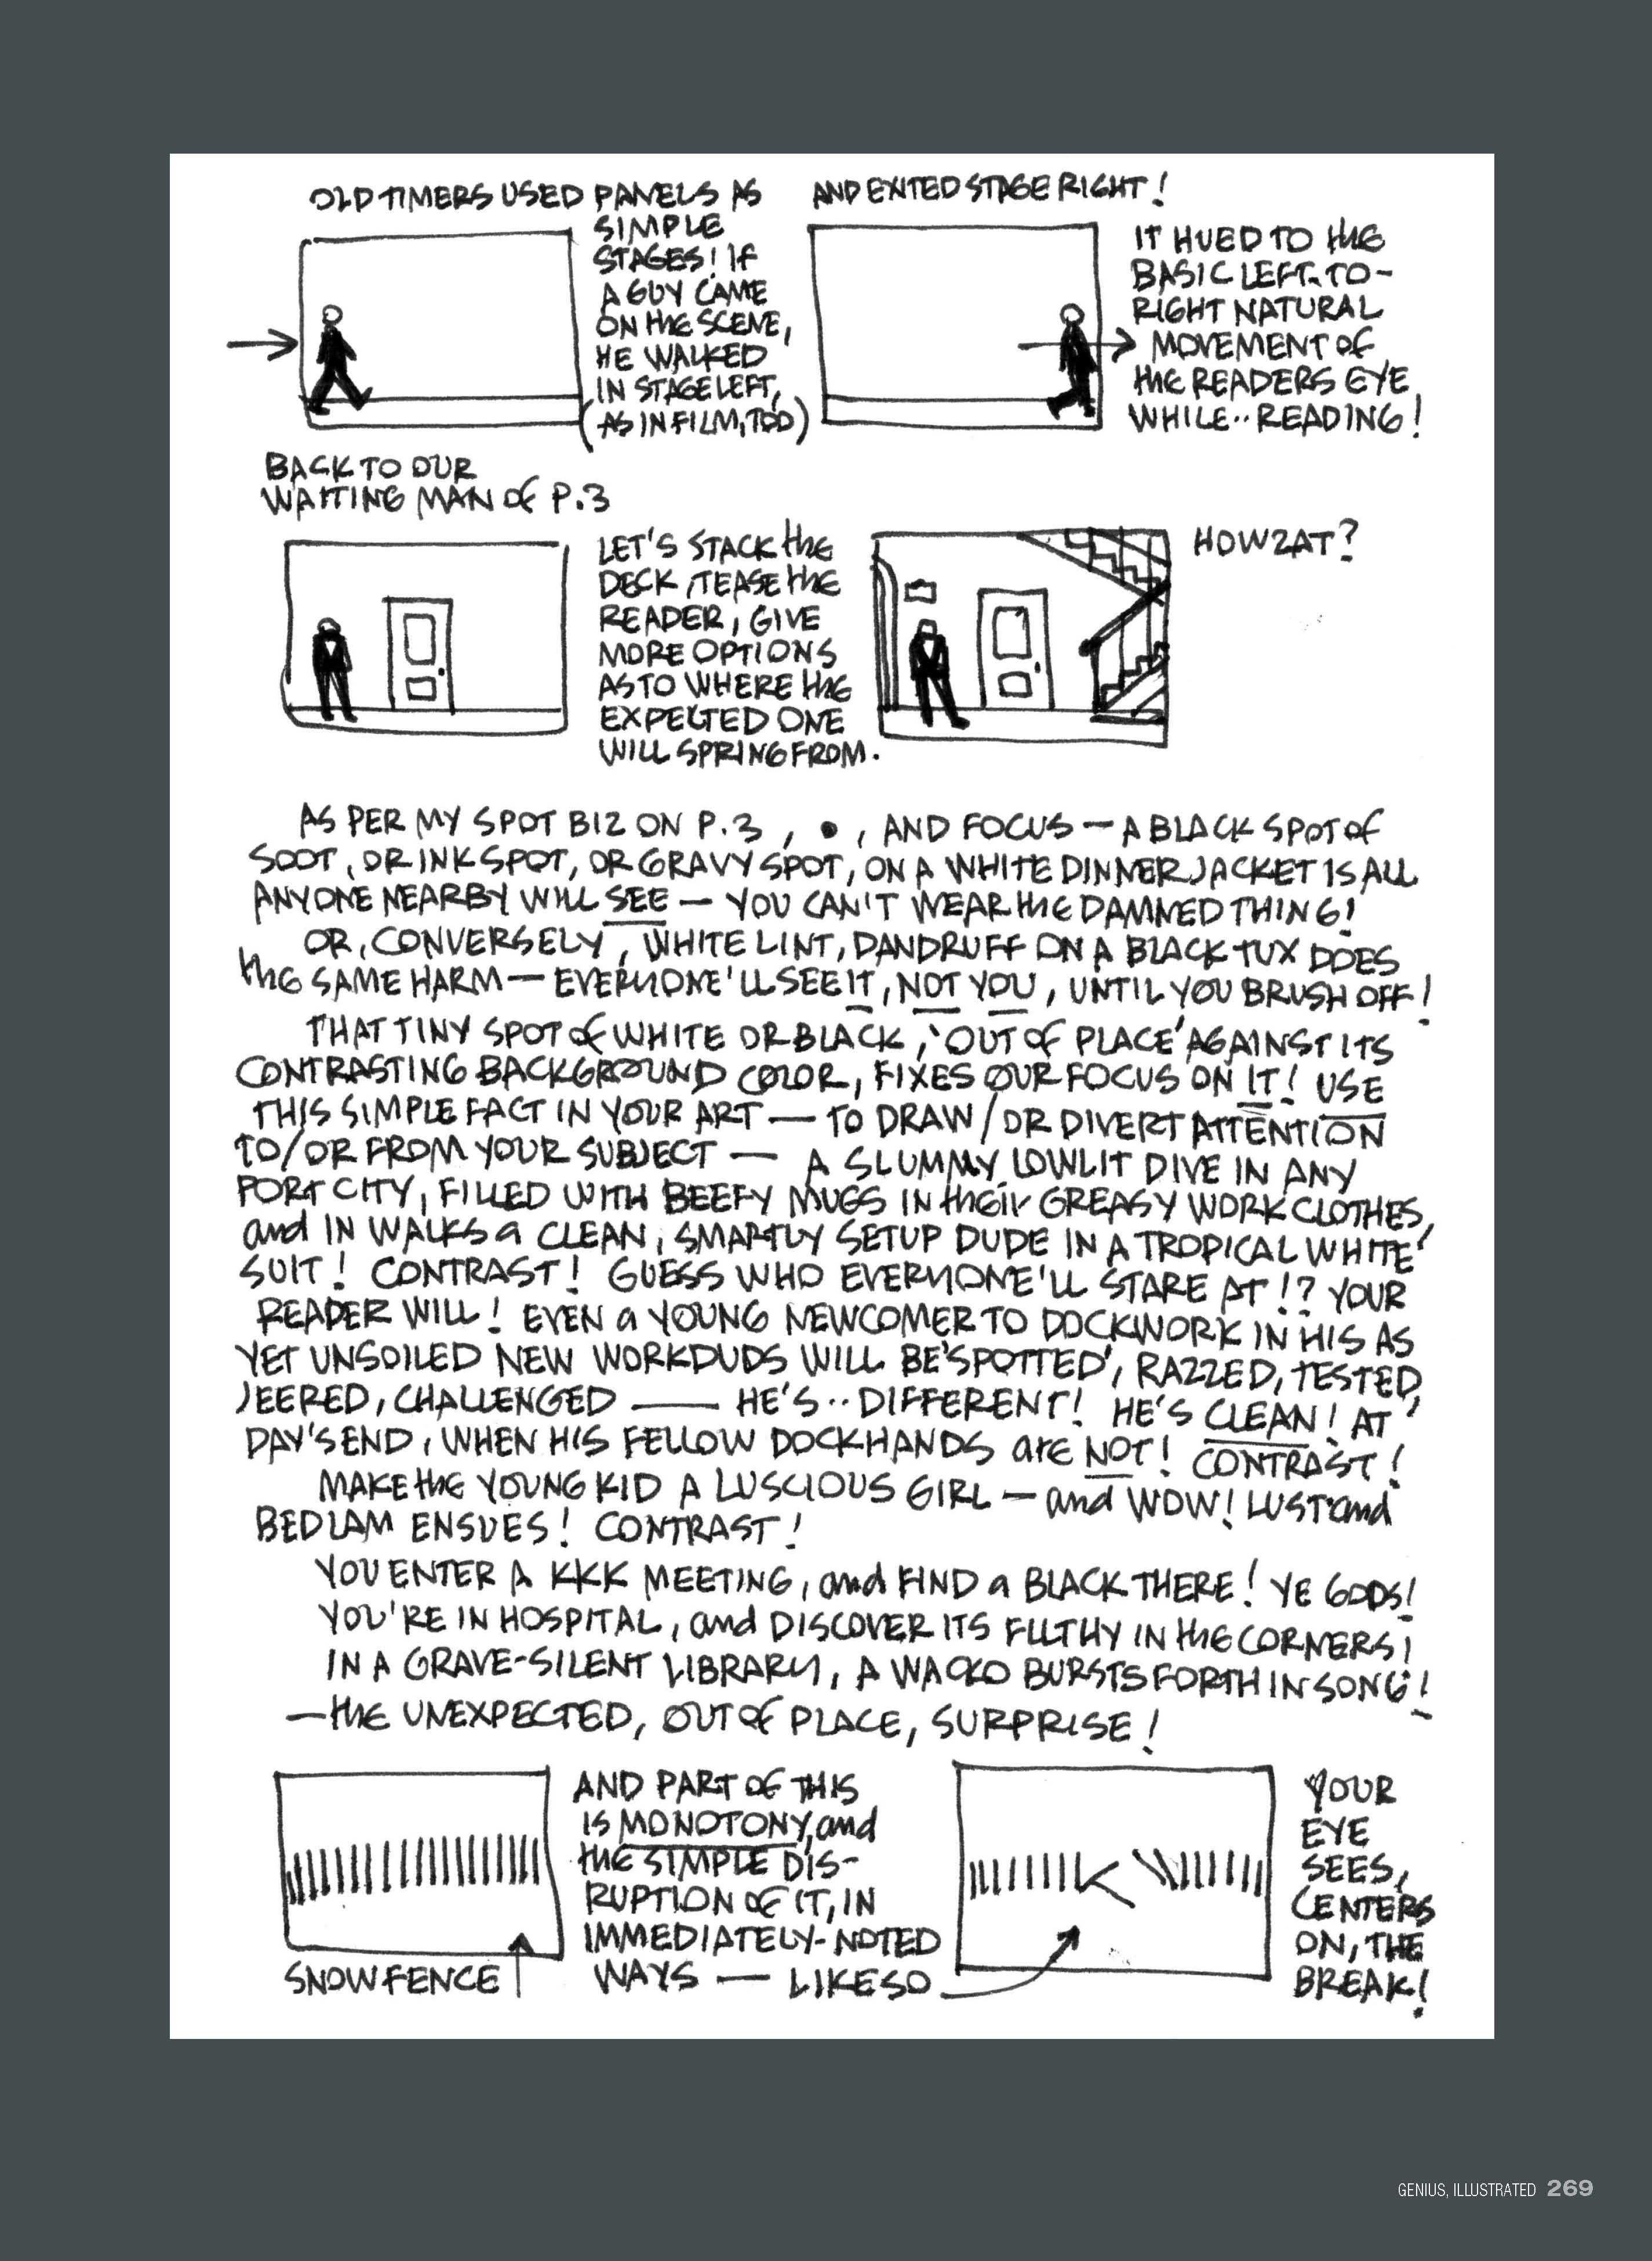 OLD TIMERS USED PANELS AS
SIMPLE
STAGES! IF
A GUY CAME
ON THE SCENE,
HE WALKED
IN STAGE LEFT,
(AS IN FILM, TOO)
AND EXITED STAGE RIGHT!
IT HUED TO THE
BASIC LEFT-TO-
RIGHT NATURAL
MOVEMENT OF
THE READERS EYE
WHILE.. READING!
BACK TO OUR
WAITING MAN OF P.3
LET'S STACK THE
DECK, TEASE THE
READER, GIVE
MORE OPTIONS
AS TO WHERE THE
EXPECTED ONE
WILL SPRING FROM.
HOWZAT?
AS PER MY SPOT BIZ ON P.3, •, AND FOCUS — A BLACK SPOT OF
SOOT, OR INK SPOT, OR GRAVY SPOT, ON A WHITE DINNER JACKET IS ALL
ANYONE NEARBY WILL SEE — YOU CAN'T WEAR THE DAMNED THING!
OR, CONVERSELY, WHITE LINT, DANDRUFF ON A BLACK TUX DOES
THE SAME HARM — EVERYONE'LL SEE IT, NOT YOU, UNTIL YOU BRUSH OFF!
THAT TINY SPOT OF WHITE OR BLACK, 'OUT OF PLACE' AGAINST ITS
CONTRASTING BACKGROUND COLOR, FIXES OUR FOCUS ON IT! USE
THIS SIMPLE FACT IN YOUR ART — TO DRAW/OR DIVERT ATTENTION
TO/OR FROM YOUR SUBJECT — A SLUMMY, LOWLIT DIVE IN ANY
PORT CITY, FILLED WITH BEEFY MUGS IN THEIR GREASY WORK CLOTHES,
and IN WALKS a CLEAN, SMARTLY SETUP DUDE IN A TROPICAL WHITE
SUIT! CONTRAST! GUESS WHO EVERYONE'LL STARE AT!? YOUR
READER WILL! EVEN a YOUNG NEWCOMER TO DOCKWORK IN HIS AS
YET UNSOILED NEW WORKDUDS WILL BE 'SPOTTED', RAZZED, TESTED,
JEERED, CHALLENGED — HE'S.. DIFFERENT! HE'S CLEAN! AT
DAY'S END, WHEN HIS FELLOW DOCKHANDS are NOT! CONTRAST!
MAKE THE YOUNG KID A LUSCIOUS GIRL — and WOW! LUST and
BEDLAM ENSUES! CONTRAST!
YOU ENTER A KKK MEETING, and FIND a BLACK THERE! YE GODS!
YOU'RE IN HOSPITAL, and DISCOVER ITS FILTHY IN THE CORNERS;
IN A GRAVE-SILENT LIBRARY, A WACKO BURSTS FORTH IN SONG!
— THE UNEXPECTED, OUT OF PLACE, SURPRISE!
SNOWFENCE
AND PART OF THIS
IS MONOTONY, and
THE SIMPLE DIS-
RUPTION OF IT, IN
IMMEDIATELY-NOTED
WAYS — LIKE SO
YOUR
EYE
SEES,
CENTERS
ON, THE
BREAK!
GENIUS, ILLUSTRATED 269